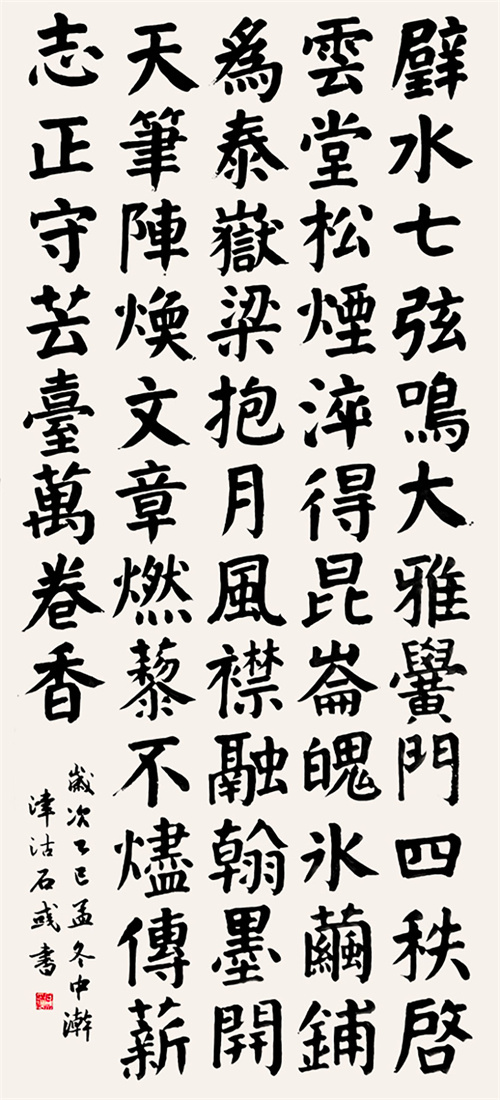 璧水七弦鳴大雅黌門四秩啓
雲堂松煙淬得昆崙魄氷繭鋪
爲泰嶽梁抱月風襟融翰墨開
天筆陣煥文章燃藜不燼傳薪
志正守芸臺萬卷香
歲次乙巳孟冬中澣
津沽石彧書